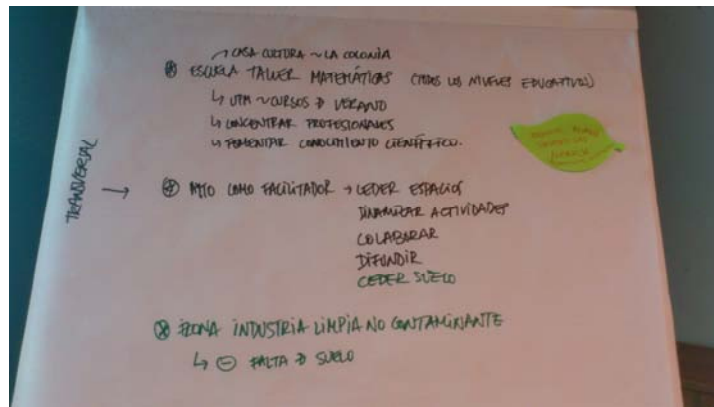 ↗ CASA CULTURA ~ LA COLONIA
⊗ ESCUELA TALLER MATEMÁTICAS (TODOS LOS NIVELES EDUCATIVOS)
↳ UPM ~ CURSOS D VERANO
↳ CONCENTRAR PROFESIONALES
↳ FOMENTAR CONOCIMIENTO CIENTÍFICO.
TRANSVERSAL →
⊗ AYTO COMO FACILITADOR → CEDER ESPACIOS
DINAMIZAR ACTIVIDADES
COLABORAR
DIFUNDIR
CEDER SUELO
⊗ ZONA INDUSTRIA LIMPIA NO CONTAMINANTE
↳ ⊖ FALTA D SUELO